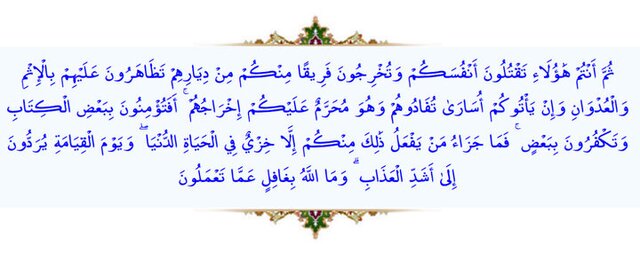 ثُمَّ أَنْتُمْ هَٰؤُلَاءِ تَقْتُلُونَ أَنْفُسَكُمْ وَتُخْرِجُونَ فَرِيقًا مِنْكُمْ مِنْ دِيَارِهِمْ تَظَاهَرُونَ عَلَيْهِمْ بِالْإِثْمِ
وَالْعُدْوَانِ وَإِنْ يَأْتُوكُمْ أُسَارَىٰ تُفَادُوهُمْ وَهُوَ مُحَرَّمٌ عَلَيْكُمْ إِخْرَاجُهُمْ ۚ أَفَتُؤْمِنُونَ بِبَعْضِ الْكِتَابِ
وَتَكْفُرُونَ بِبَعْضٍ ۚ فَمَا جَزَاءُ مَنْ يَفْعَلُ ذَٰلِكَ مِنْكُمْ إِلَّا خِزْيٌ فِي الْحَيَاةِ الدُّنْيَا ۖ وَيَوْمَ الْقِيَامَةِ يُرَدُّونَ
إِلَىٰ أَشَدِّ الْعَذَابِ ۗ وَمَا اللَّهُ بِغَافِلٍ عَمَّا تَعْمَلُونَ